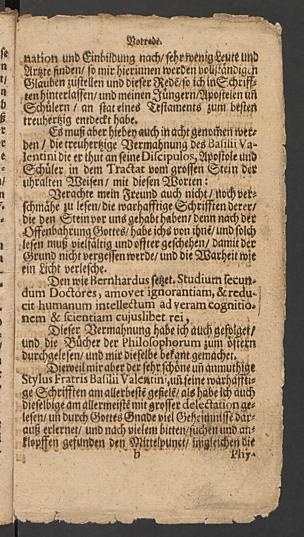 Vorrede.
nation und Einbildung nach/ sehr wenig Leute und
Artzte finden/ so mir hierinnen werden vollständigen
Glauben zustellen und dieser Rede/ so ich in Schriff-
ten hinterlassen/ und meinen Jüngern/ Aposteln uñ
Schülern / an stat eines Testaments zum besten
treuhertzig entdeckt habe.
Es muß aber hiebey auch in acht genom̃en wer-
den / die treuhertzige Vermahnung des Basilii Va-
lentini die er thut an seine Discipulos, Apostole und
Schüler in dem Tractat vom grossen Stein der
uhralten Weisen/ mit diesen Worten:
Verachte mein Freund auch nicht/ noch ver-
schmähe zu lesen/ die warhafftige Schrifften derer/
die den Stein vor uns gehabt haben/ denn nach der
Offenbahrung Gottes/ habe ichs von ihnē/ und solch
lesen muß vielfältig und offter geschehen/ damit der
Grund nicht vergessen werde/ und die Warheit wie
ein Licht verlesche.
Den wie Bernhardus setzet. Studium secun-
dum Doctores, amovet ignorantiam, & redu-
cit humanum intellectum ad veram cognitio-
nem & scientiam cujuslibet rei,
Dieser Vermahnung habe ich auch gefolget/
und die Bücher der Philosophorum zum öftern
durchgelesen/ und mir dieselbe bekant gemachet.
Dieweil mir aber der sehr schöne uñ anmuthige
Stylus Fratris Basilii Valentini, uñ seine warhaffti-
ge Schrifften am allerbeste gefiele/ als habe ich auch
dieselbige am allermeistē mit grosser delectation ge-
lesen/ uñ durch Gottes Gnade viel Geheimnisse dar-
auß erlernet/ und nach vielem bitten/ suchen und an-
klopffen gefunden den Mittelpunct/ ingleichen die
b Phy-